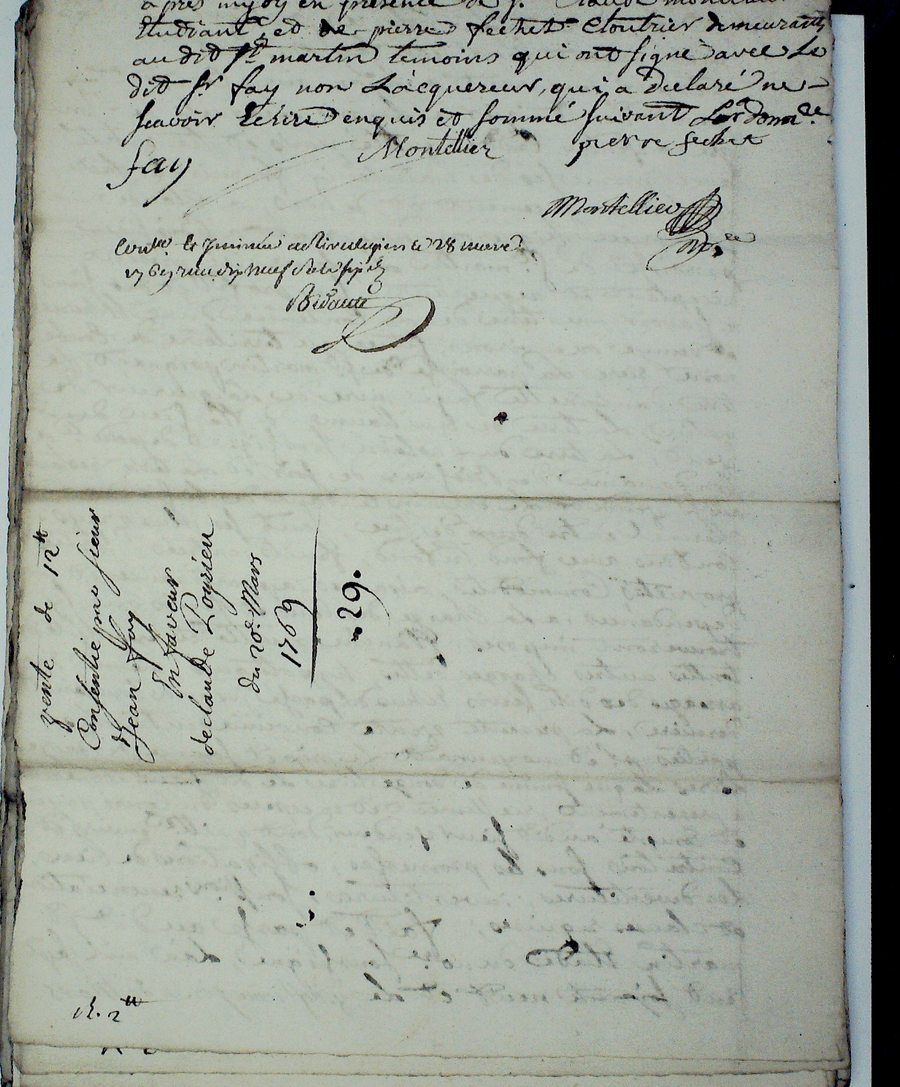 après midy en présence de Sr. Claude
Etudiant, et de pierre fechet Cloutrier demeurants
au dit St martin temoins qui ont signé avec Le
dit Sr fay non Lacquereur, qui a declaré ne
scavoir Ecrire enquis et sommé suivant Lordonnce
fay Montellier pierre fechet
Montellier
nore
Conlle le a st 28 mars
1769 dix neuf sols six d
vente de 12tt
Consentie par sieur
Jean Fay
En faveur
de claude Poyrieu
du 20e Mars
1769
29.
R. 2tt